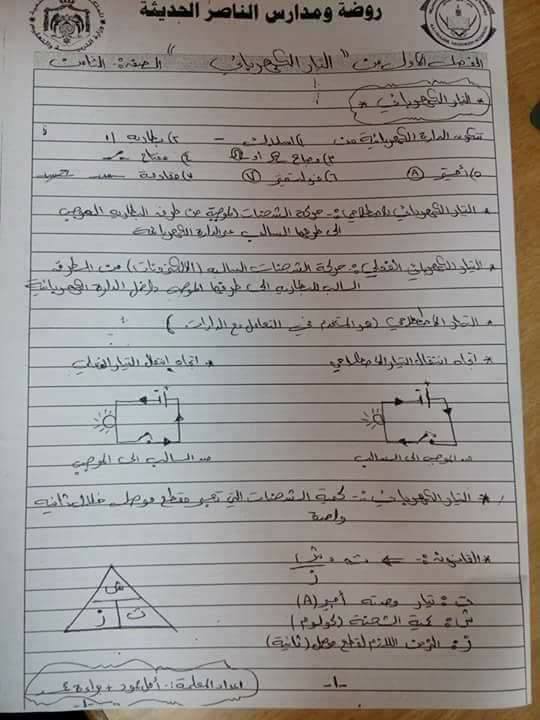 روضة ومدارس الناصر الحديثة
الفصل الأول من "التيار الكهربائي" الصف: الثامن
* التيار الكهربائي *
تتكون الدارة الكهربائية من ١) أسلاك ٢) بطارية
٣) مصباح أو ٤) مفتاح
٥) أميتر A ٦) فولتميتر V ٧) مقاومة
* التيار الكهربائي الاصطلاحي :- حركة الشحنات الموجبة من طرف البطارية الموجب
الى طرفها السالب عبر الدارة الكهربائية
* التيار الكهربائي الفعلي :- حركة الشحنات السالبة (الالكترونات) من الطرف
السالب للبطارية الى طرفها الموجب داخل الدارة الكهربائية
* التيار الاصطلاحي (هو المستخدم في التعامل مع الدارات)
* اتجاه انتقال التيار الاصطلاحي
* اتجاه انتقال التيار الفعلي
من الموجب الى السالب
من السالب الى الموجب
* التيار الكهربائي :- كمية الشحنات التي تعبر مقطع موصل خلال ثانية
واحدة
* القانون :- ← ت = ش
ز
ش
ز ت
ت : تيار وحدته أمبير (A)
ش : كمية الشحنة (كولوم)
ز : الزمن اللازم لقطع موصل (ثانية)
اعداد المعلمة :- أمل
-١-